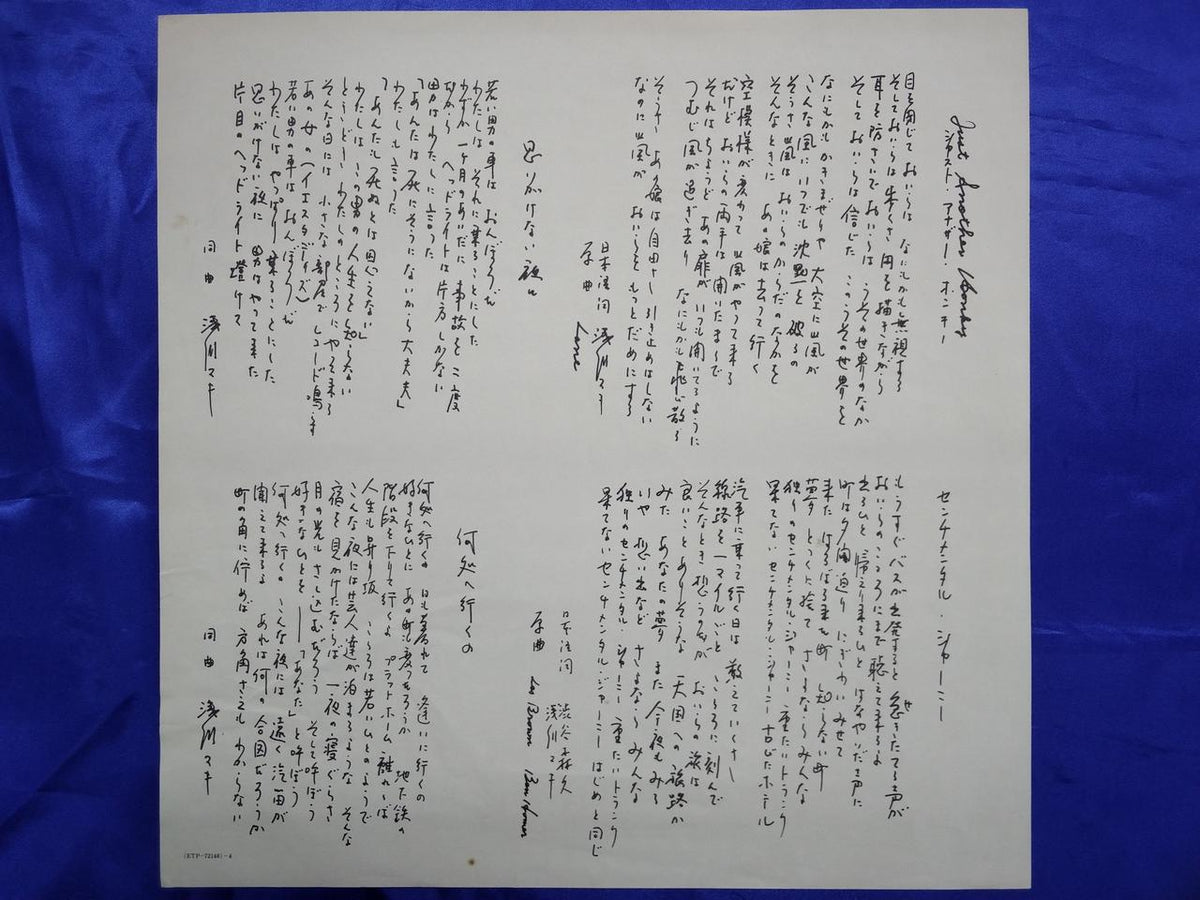 Just Another Honky
ジャスト・アナザー・ホンキー
目を閉じて おいらは なにもかも無視する
そしておいらは 朱くさ 円を描きながら
耳を防さいで おいらは うその世界のなか
そして おいらは信じた このうその世界を
なにもかも かきまぜりゃ 大空に風が
こんな風に いつでも 沈黙を 破るの
そうさ 風は おいらの からだのなかを
そんなときに あの娘は 去って行く
空模様が変わって 風がやって来る
だけど おいらの両手は 開いたままで
それはちょうど あの扉が いつも開いてるように
つむじ風が過ぎ去り なにもかも飛び散る
そうサー あの娘は自由サ 引き止めはしない
なのに 風が おいらを もっとだめにする
日本語詞 浅川マキ
原曲 Lane
思いがけない夜に
若い男の車は おんぼろだ
わたしは それに乗ることにした
わずか 一ヶ月のあいだに 事故を二度
だから ヘッドライトは 片方しかない
男は わたしに言った
「あんたは 死にそうにないから大丈夫」
わたしも 言った
「あんたも 死ぬとは 思えない」
わたしは この男の 人生を知らない
とうきどき わたしのところに やって来る
そんな日には 小さな部屋で レコード鳴らす
あの女の（イエスタデイズ）
若い男の車は おんぼろだ
わたしは やっぱり 乗ることにした
思いがけない夜に 男はやって来た
片目の ヘッドライト 燈けて
同曲 浅川マキ
センチメンタル・ジャーニー
もうすぐ バスが 出発すると 急きたてる声が
せ
おいらの こころにまで 聴えて来るよ
出るひと 帰える来るひと はなやいだ声に
町は夕闇迫り にぎわいみせて
来た はるばる来た町 知らない町
夢も とっくに捨て さよなら みんな
独りの センチメンタル・ジャーニー 重たいトランク
果てない センチメンタル・ジャーニー 古びたホテル
汽車に乗って行く日は 数えていくサー
線路を 一マイルごと こころに刻んで
そんなとき 想うのが おいらの旅は
良いこと ありそうな 天国への旅路か
みた あなたの夢 また今夜もみる
いや 想い出など さよなら みんな
独りの センチメンタル・ジャーニー 重たいトランク
果てない センチメンタル・ジャーニー はじめと同じ
日本語詞 渋谷森久
浅川マキ
原曲 Les Brown Ben Homer
何処へ行くの
何処へ行くの 日も暮れて 逢いに行くの
好きなひとに あの町も変っただろうか 地下鉄の
階段を下りて行くよ プラットホーム離れれば
人生も昇り坂 こころは若いひとのようで
こんな夜には 芸人達が泊まるような そんな
宿を見かけたならば 一夜の寝ぐらさ
月の光も さし込むだろう そして呼ぼう
好きなひとを ――「あなた」と呼ぼう
何処へ行くの こんな夜には 遠く汽笛が
聞えて来るよ あれは何の合図だろうか
町の角に佇めば 方角さえも わからない
同曲 浅川マキ
(ETP-72148)-4